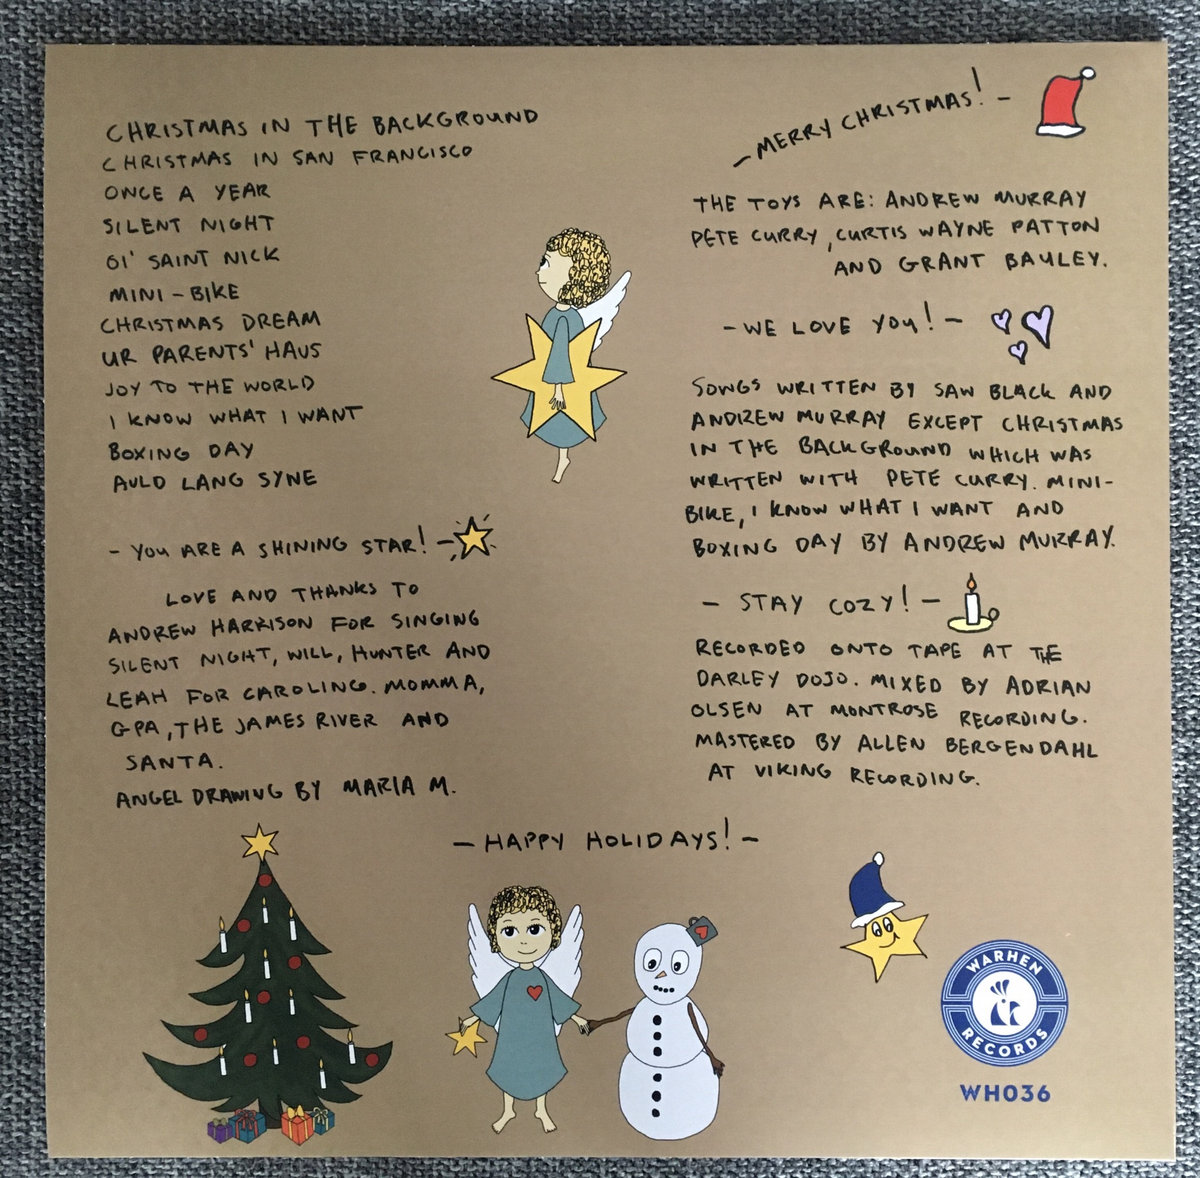 CHRISTMAS IN THE BACKGROUND
CHRISTMAS IN SAN FRANCISCO
ONCE A YEAR
SILENT NIGHT
Ol' SAINT NICK
MINI-BIKE
CHRISTMAS DREAM
UR PARENTS' HAUS
JOY TO THE WORLD
I KNOW WHAT I WANT
BOXING DAY
AULD LANG SYNE
- YOU ARE A SHINING STAR! -
LOVE AND THANKS TO
ANDREW HARRISON FOR SINGING
SILENT NIGHT, WILL, HUNTER AND
LEAH FOR CAROLING. MOMMA,
GPA, THE JAMES RIVER AND
SANTA.
ANGEL DRAWING BY MARIA M.
- MERRY CHRISTMAS! -
THE TOYS ARE: ANDREW MURRAY
PETE CURRY, CURTIS WAYNE PATTON
AND GRANT BAULEY.
- WE LOVE YOU! -
SONGS WRITTEN BY SAW BLACK AND
ANDREW MURRAY EXCEPT CHRISTMAS
IN THE BACKGROUND WHICH WAS
WRITTEN WITH PETE CURRY. MINI-
BIKE, I KNOW WHAT I WANT AND
BOXING DAY BY ANDREW MURRAY.
- STAY COZY! -
RECORDED ONTO TAPE AT THE
DARLEY DOJO. MIXED BY ADRIAN
OLSEN AT MONTROSE RECORDING.
MASTERED BY ALLEN BERGENDAHL
AT VIKING RECORDING.
- HAPPY HOLIDAYS! -
WARHEN
RECORDS
WH036